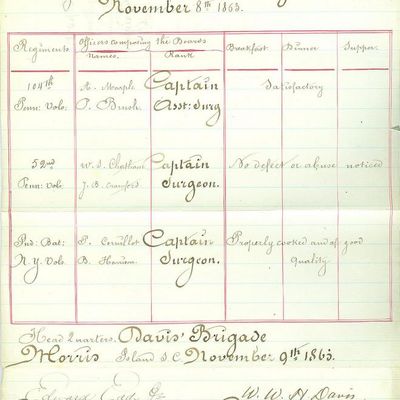 November 8th 1863.
Regiments Officers composing the Boards Breakfast Dinner Supper
Names. Rank
104th A. Marple Captain Satisfactory
Penn: Vols. P. Brush. Asst: Surg
52nd W. S. Chatham Captain No defect or abuse noticed
Penn: Vols J. B. Crawford Surgeon.
Ind: Bat: P. Captain Properly cooked and of good
N. Y. Vols. B. Surgeon. quality
Head Quarters. Davis' Brigade
Morris Island S. C. November 9th 1863.
Edward
W. W. H Davis